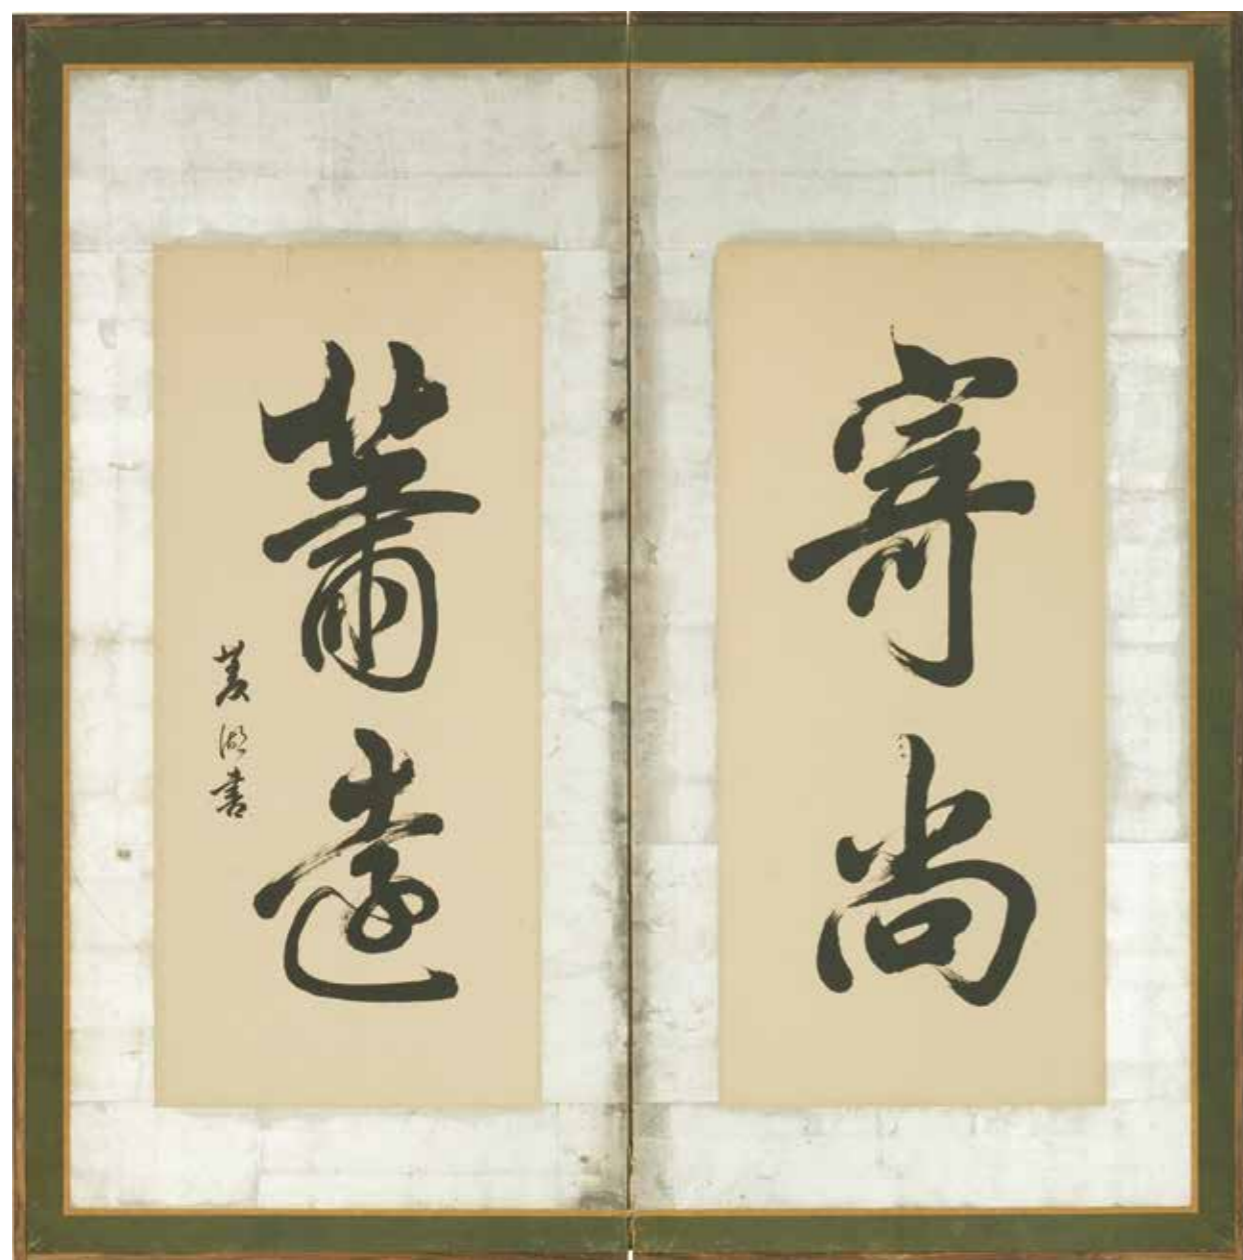 寄尚
蕭遠
菱湖書